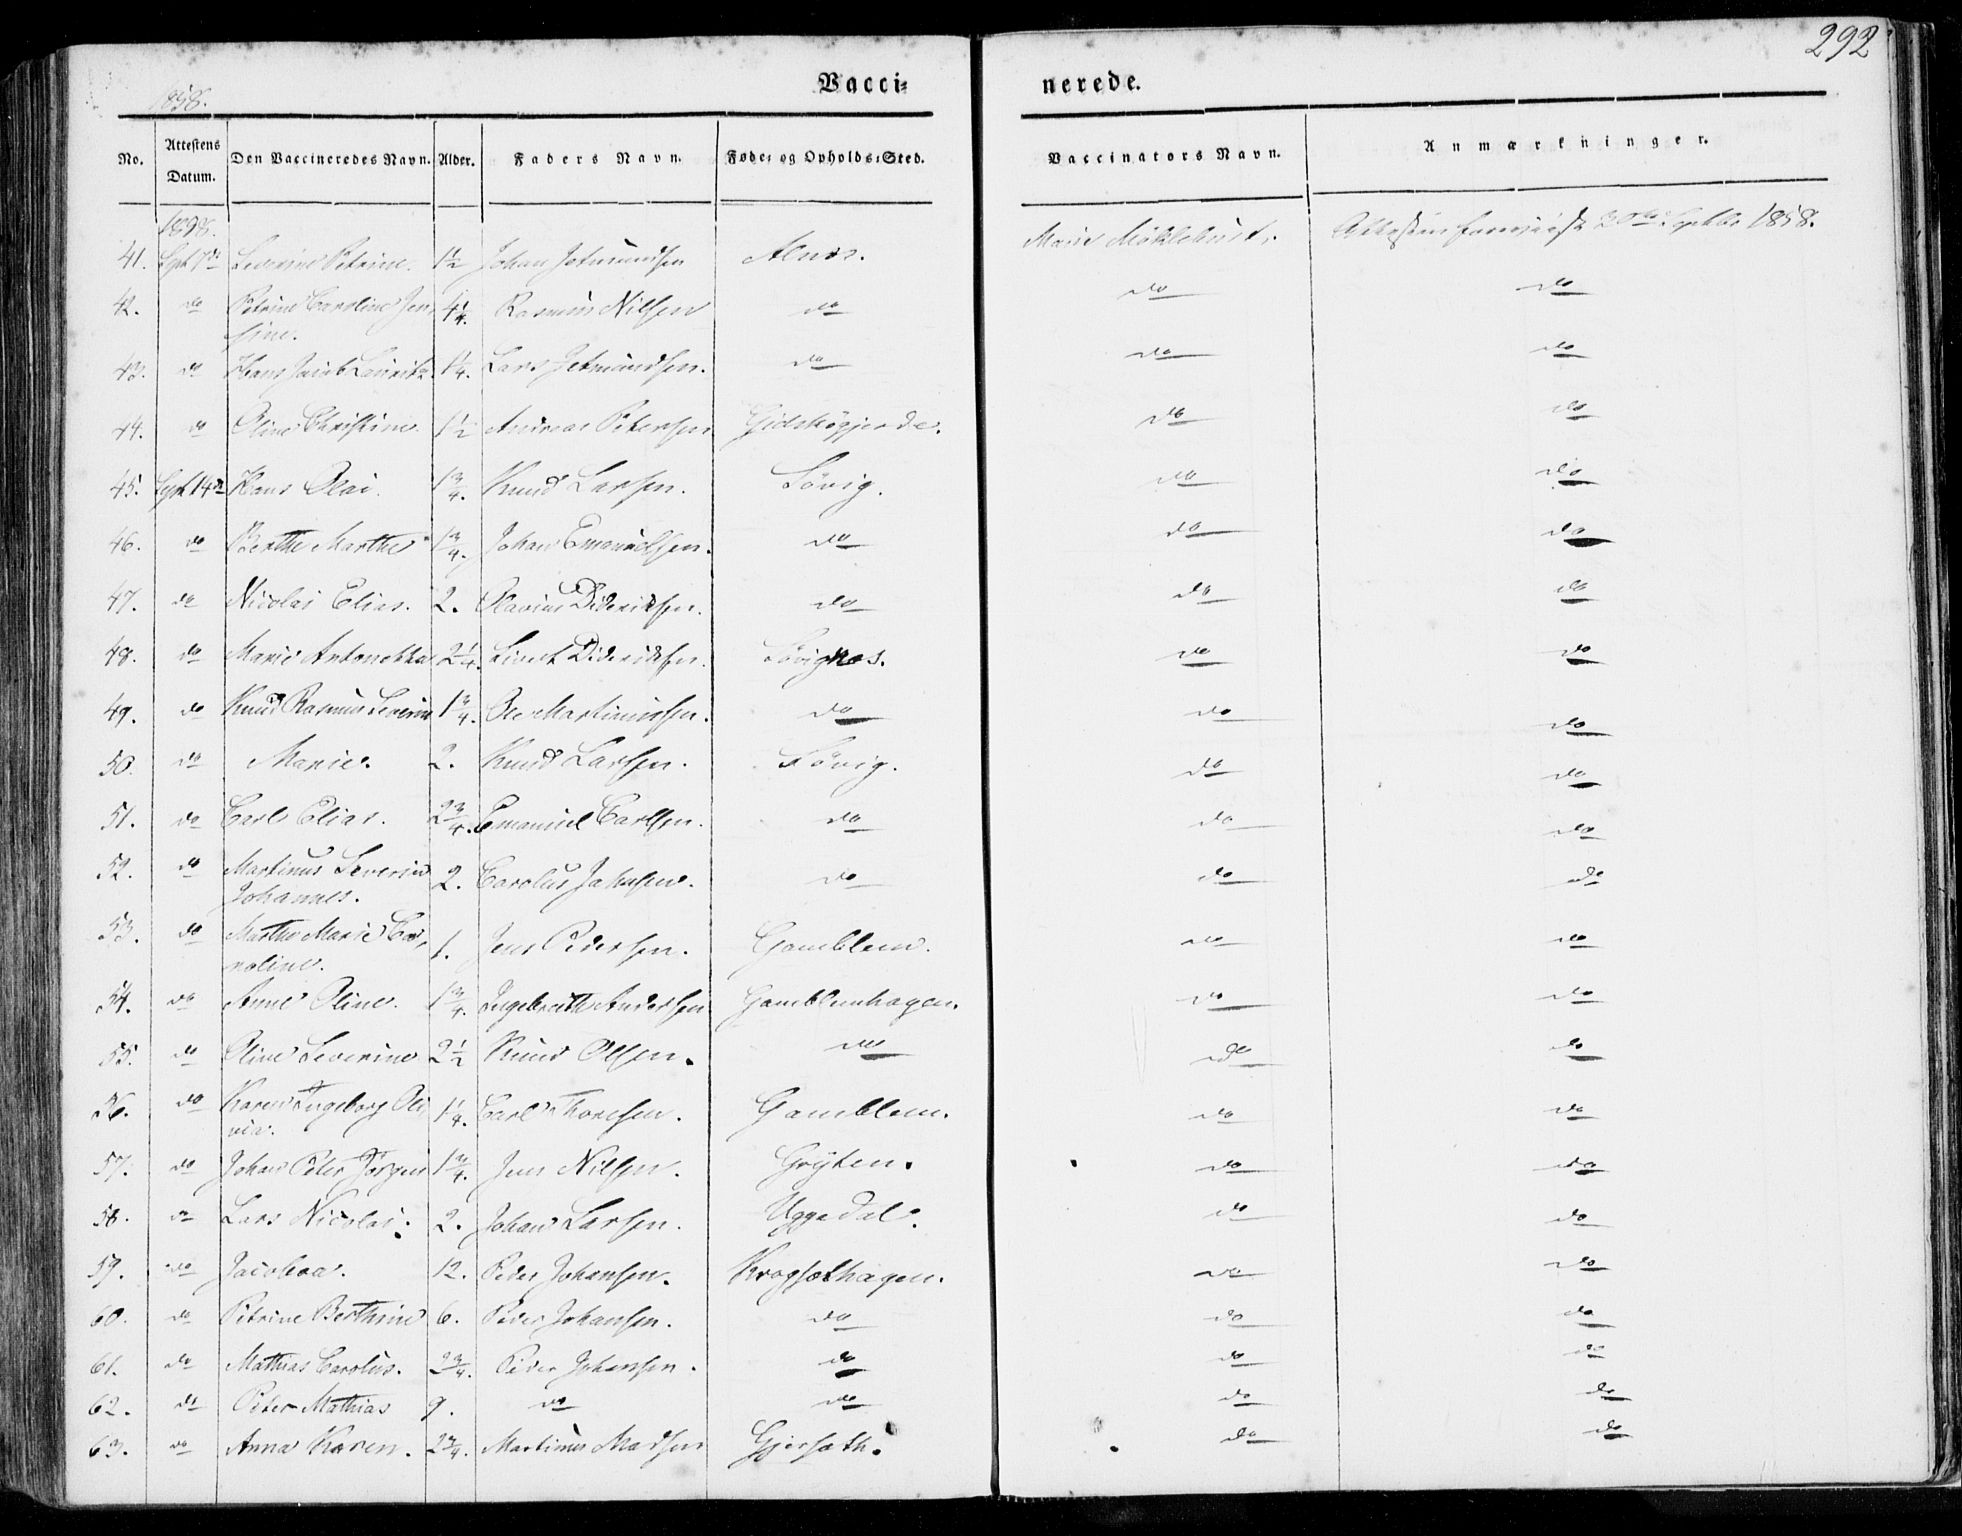 292
Vacci=
nerede.
1858.
No. Attestens Datum. Den Vaccineredes Navn. Alder. Faders Navn. Føde= og Opholds=Sted. Vaccinators Navn. Anmærkninger.
1858.
41. Sept 7de Severine Petrine. 1½ Johan Jetmundsen Alnæs. Marie Møklebust. Attesten foreviist Septbr 1858.
42. do Petrine Caroline Jen= 4¼. Rasmus Nilsen do do do
sine.
43. do Hans Jacob Lauritz. 1¼. Lars Jetmundsen. do do do
44. do Oline Christine. 1½ Andreas Petersen Gidskøgjerde. do do
45. Sept 14de Hans Olai. 1¾. Knud Larsen. Søvig. do do
46. do Berthe Marthe 1¾. Johan Emanuelsen. do do do
47. do Nicolai Elias. 2. Olavius Dideriksen. do do do
48. do Marie Antonette 2¼. Sivert Dideriksen. Søvignæs. do do
49. do Knud Rasmus Severin 1¾. Ole Martinussen. do do do
50. do Marie. 2. Knud Larsen. Søvig. do do
51. do Carl Elias. 2¾. Emanuel Carlsen. do do do
52. do Martinus Severin 2. Carolus Johnsen. do do do
Johannes.
53. do Marthe Marie Ca= 1. Jens Pedersen. Gamblem. do do
roline.
54. do Anne Oline. 1¾. Ingebrigt Andersen Gamblemhagen. do do
55. do Oline Severine 2½ Knud Olsen. do do do
56. do Karen Ingeborg Oli= 1¼. Carl Thoresen. Gamblem. do do
via.
57. do Johan Peter Jørgen 1¾. Jens Nilsen. Gryten. do do
58. do Lars Nicolai. 2. Johan Larsen. Uggedal. do do
59. do Jacobea. 12. Peder Johansen. Krogsæthagen. do do
60. do Petrine Berthine 6. Peder Johansen. do do do
61. do Mathias Carolus. 2¾. Peder Johansen. do do do
62. do Peter Mathias 9. do do do do
63. do Anna Karen. 2¾. Martinus Madsen Gjersæth. do do